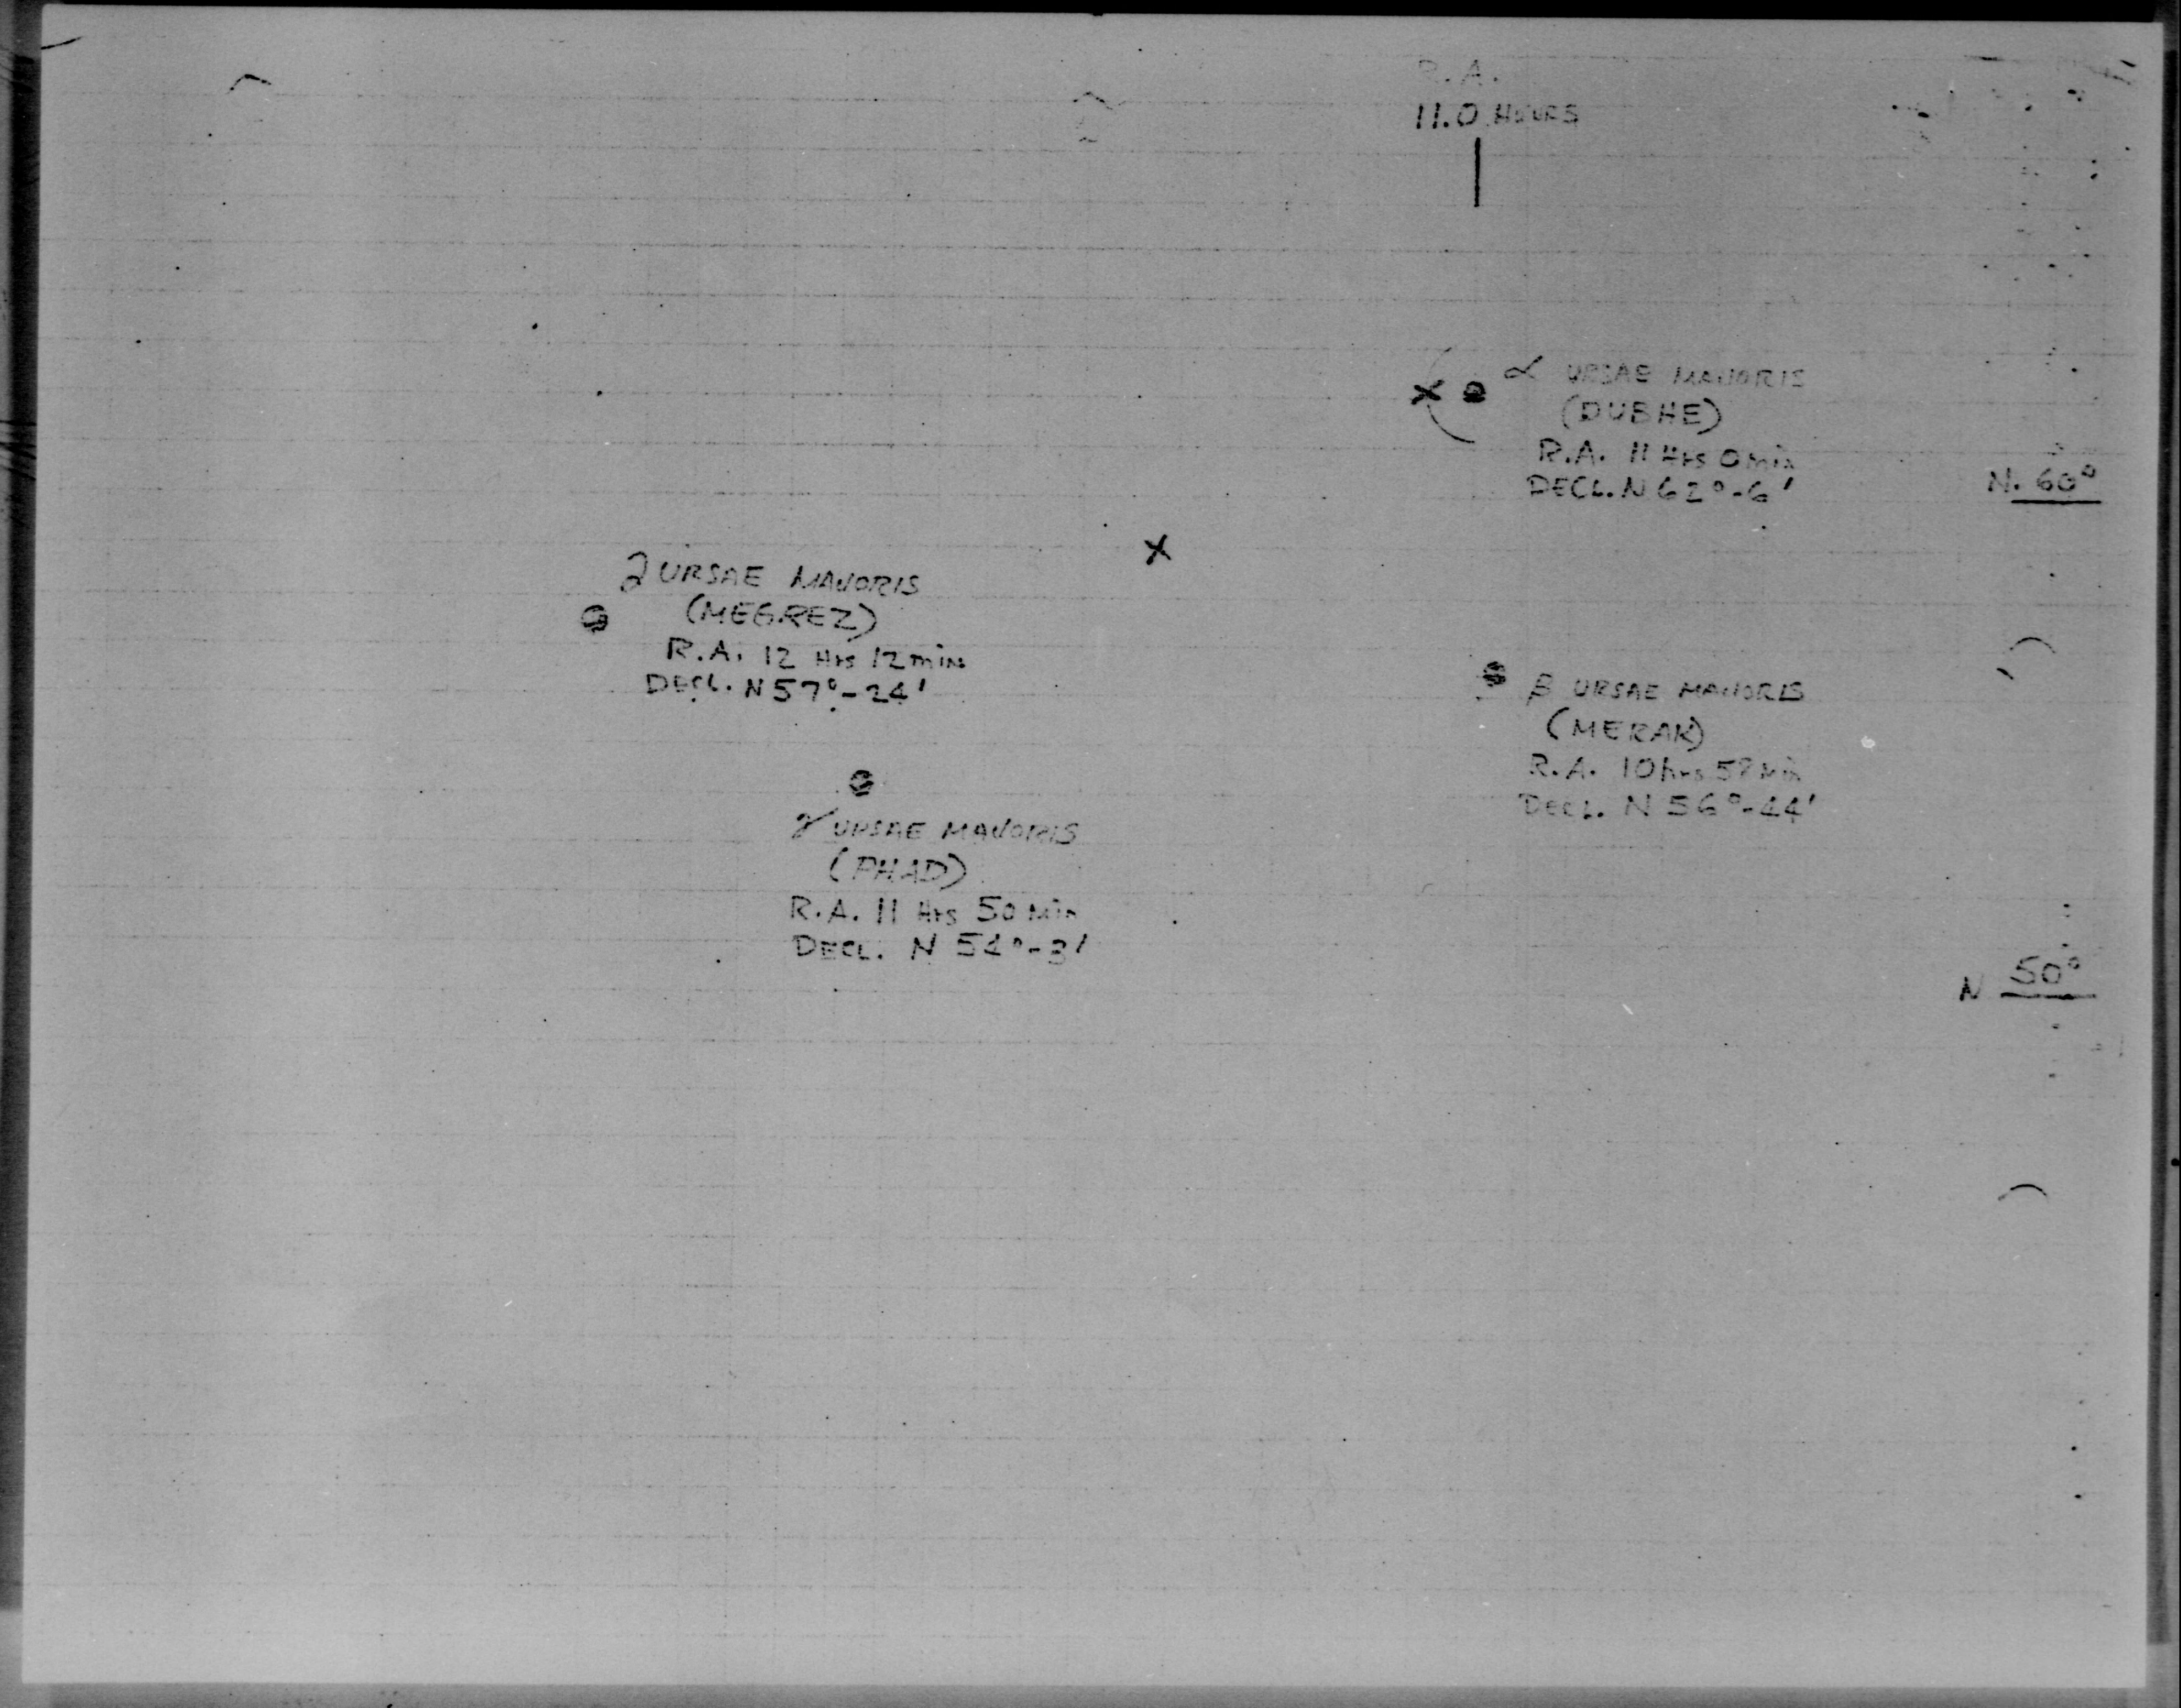 R.A.
11.0 HOURS
α URSAE MAJORIS
(DUBHE)
R.A. 11 Hrs 0 min
DECL. N 62°-6'
N. 60°
∂ URSAE MAJORIS
(MEGREZ)
R.A. 12 Hrs 12 min
DECL. N 57°-24'
β URSAE MAJORIS
(MERAK)
R.A. 10 hrs Min
DECL. N 56°-44'
γ URSAE MAJORIS
(PHAD)
R.A. 11 Hrs 50 Min
DECL. N 54°-3'
N 50°